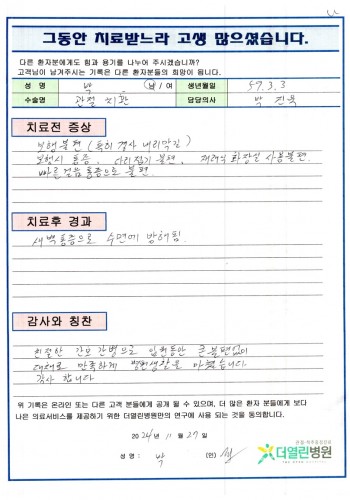 그동안 치료받느라 고생 많으셨습니다.
다른 환자분에게도 힘과 용기를 나누어 주시겠습니까?
고객님이 남겨주시는 기록은 다른 환자분들의 희망이 됩니다.
성 명 박 남 / 여 생년월일 57.3.3
수술명 관절 치환 담당의사 박 진욱
치료전 증상
보행불편 (특히 경사 내리막길)
보행시 통증, 다리접기 불편, 재래식 화장실 사용불편.
빠른걸음 통증으로 불편.
치료후 경과
새벽통증으로 수면에 방해됨.
감사와 칭찬
친절한 간호 간병으로 입원동안 큰 불편없이
대체로 만족하게 병원생활을 마쳤습니다.
감사 합니다
위 기록은 온라인 또는 다른 고객 분들에게 공개 될 수 있으며, 더 많은 환자 분들에게 보다
나은 의료서비스를 제공하기 위한 더열린병원만의 연구에 사용 되는 것을 동의합니다.
2024년 11月 27일
성 명 : 박 (인)
관절·척추중점진료
더열린병원